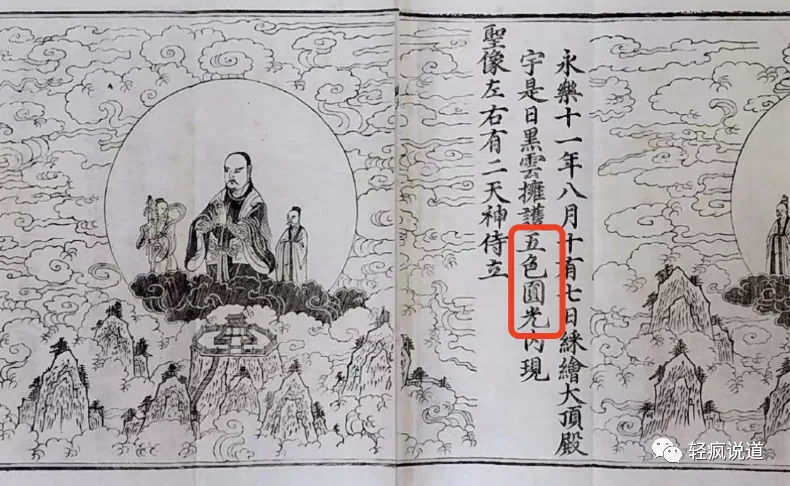 永樂十一年八月十有七日綵繪大頂殿
宇是日黑雲擁護五色圓光內現
聖像左右有二天神侍立
轻疯说道